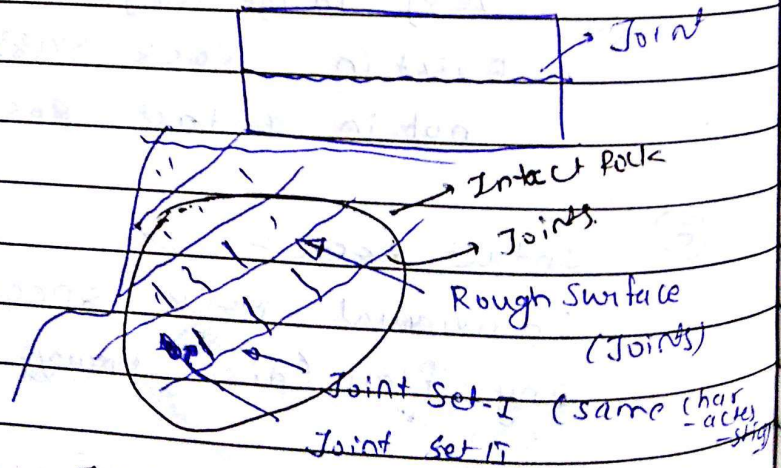 Joint
Intact Rock
Joints.
Rough Surface
(Joints)
Joint Set-I (same char
-acter
-stig
Joint Set II